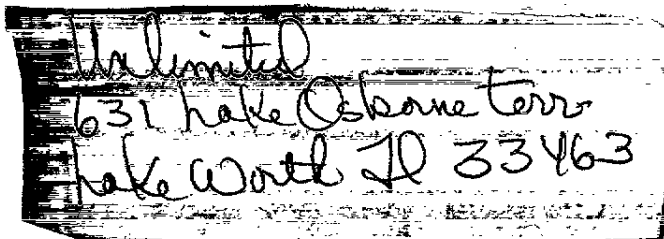 Unlimited
631 Lake Osborne Terr
Lake Worth Fl 33463